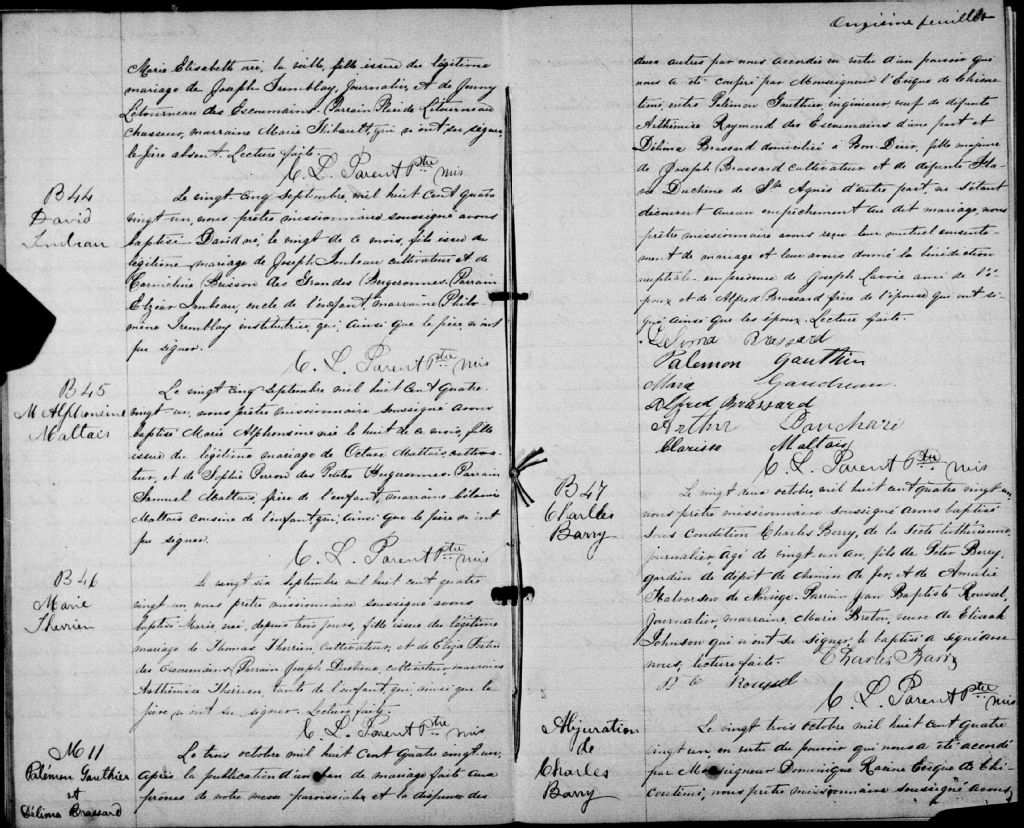 Marie Elisabeth née, la veille, fille issue du légitime
mariage de Joseph Tremblay, Journalier, et de Jenny
Letourneau des Escoumains. Parrain Letourneau
chasseur, marraine Marie Thibault, qui n'ont su signer,
le père absent. Lecture faite.
C. L. Parent Ptre mis
B 44
David
Imbeau
Le vingt cinq septembre, mil huit cent quatre
vingt un, nous prêtre missionnaire soussigné avons
baptisé David né, le vingt de ce mois, fils issu du
légitime mariage de Joseph Imbeau cultivateur et de
Carméline Brisson des Grandes Bergeronnes. Parrain
Elzéar Imbeau, oncle de l'enfant, marraine Philo
mène Tremblay institutrice, qui, ainsi que le père n'ont
pu signer.
C. L. Parent Ptre mis
B 45
M Alphonsine
Maltais
Le vingt cinq septembre mil huit cent quatre
vingt un, nous prêtre missionnaire soussigné avons
baptisé Marie Alphonsine née le huit de ce mois, fille
issue du légitime mariage de Octave Maltais, cultiva-
teur, et de Sophie Perron des Petites Bergeronnes. Parrain
Samuel Maltais, frère de l'enfant, marraine
Maltais cousine de l'enfant, qui, ainsi que le père n'ont
pu signer.
C. L. Parent ptre mis
B 46
Marie
Therrien
Le vingt six septembre mil huit cent quatre
vingt un nous prêtre missionnaire soussigné avons
baptisé Marie née, depuis trois jours, fille issue du légitime
mariage de Thomas Therrien, cultivateur, et de Eliza Fortin
des Escoumains. Parrain Joseph Duchene, cultivateur, marraine
Arthémise Therrien, tante de l'enfant, qui, ainsi que le
père n'ont su signer. Lecture faite.
C. L. Parent Ptre mis
M 11
Palémon Gauthier
et
Délima Brassard
Le trois octobre mil huit cent quatre vingt un,
après la publication d'un ban de mariage faite aux
prônes de notre messe paroissiale et la dispense des
Onzième feuillet
deux autres par nous accordée en vertu d'un pouvoir qui
nous a été conféré par Monseigneur l'Evêque de Chicou
timi, entre Palémon Gauthier, ingénieur, veuf de défunte
Arthémise Raymond des Escoumains d'une part et
Délima Brassard domiciliée à Bon-Désir, fille majeure
de Joseph Brassard cultivateur et de défunte
Duchêne de Ste Agnès d'autre part, ne s'étant
découvert aucun empêchement au dit mariage, nous
prêtre missionnaire avons reçu leur mutuel consente-
ment de mariage et leur avons donné la bénédiction
nuptiale en présence de Joseph Lavoie ami de l'é-
poux et de Alfred Brassard frère de l'épouse qui ont si-
gné ainsi que les époux. Lecture faite.
Deloma Brassard
Palemon Gauthier
Marx Gaudreau
Alfred Brassard
Arthur Bouchard
Clarisse Maltais
C. L. Parent Ptre mis
B 47
Charles
Barry
Le vingt deux octobre, mil huit cent quatre vingt un,
nous prêtre missionnaire soussigné avons baptisé
sous condition Charles Berry, de la secte luthérienne,
journalier, âgé de vingt un an, fils de Peter Berry,
gardien de dépôt de chemin de fer, et de Amalie
Halvorsen de Norvège. Parrain Jean Baptiste Roussel,
Journalier, marraine, Marie Breton, veuve de Eliseah
Johnson qui n'ont su signer, le baptisé a signé avec
nous, lecture faite.
Charles Barry
B C Roussel
C. L. Parent Ptre mis
Abjuration
de
Charles
Barry
Le vingt trois octobre mil huit cent quatre
vingt un, en vertu du pouvoir qui nous a été accordé
par Monseigneur Dominique Racine Evêque de Chi-
coutimi, nous prêtre missionnaire soussigné avons,